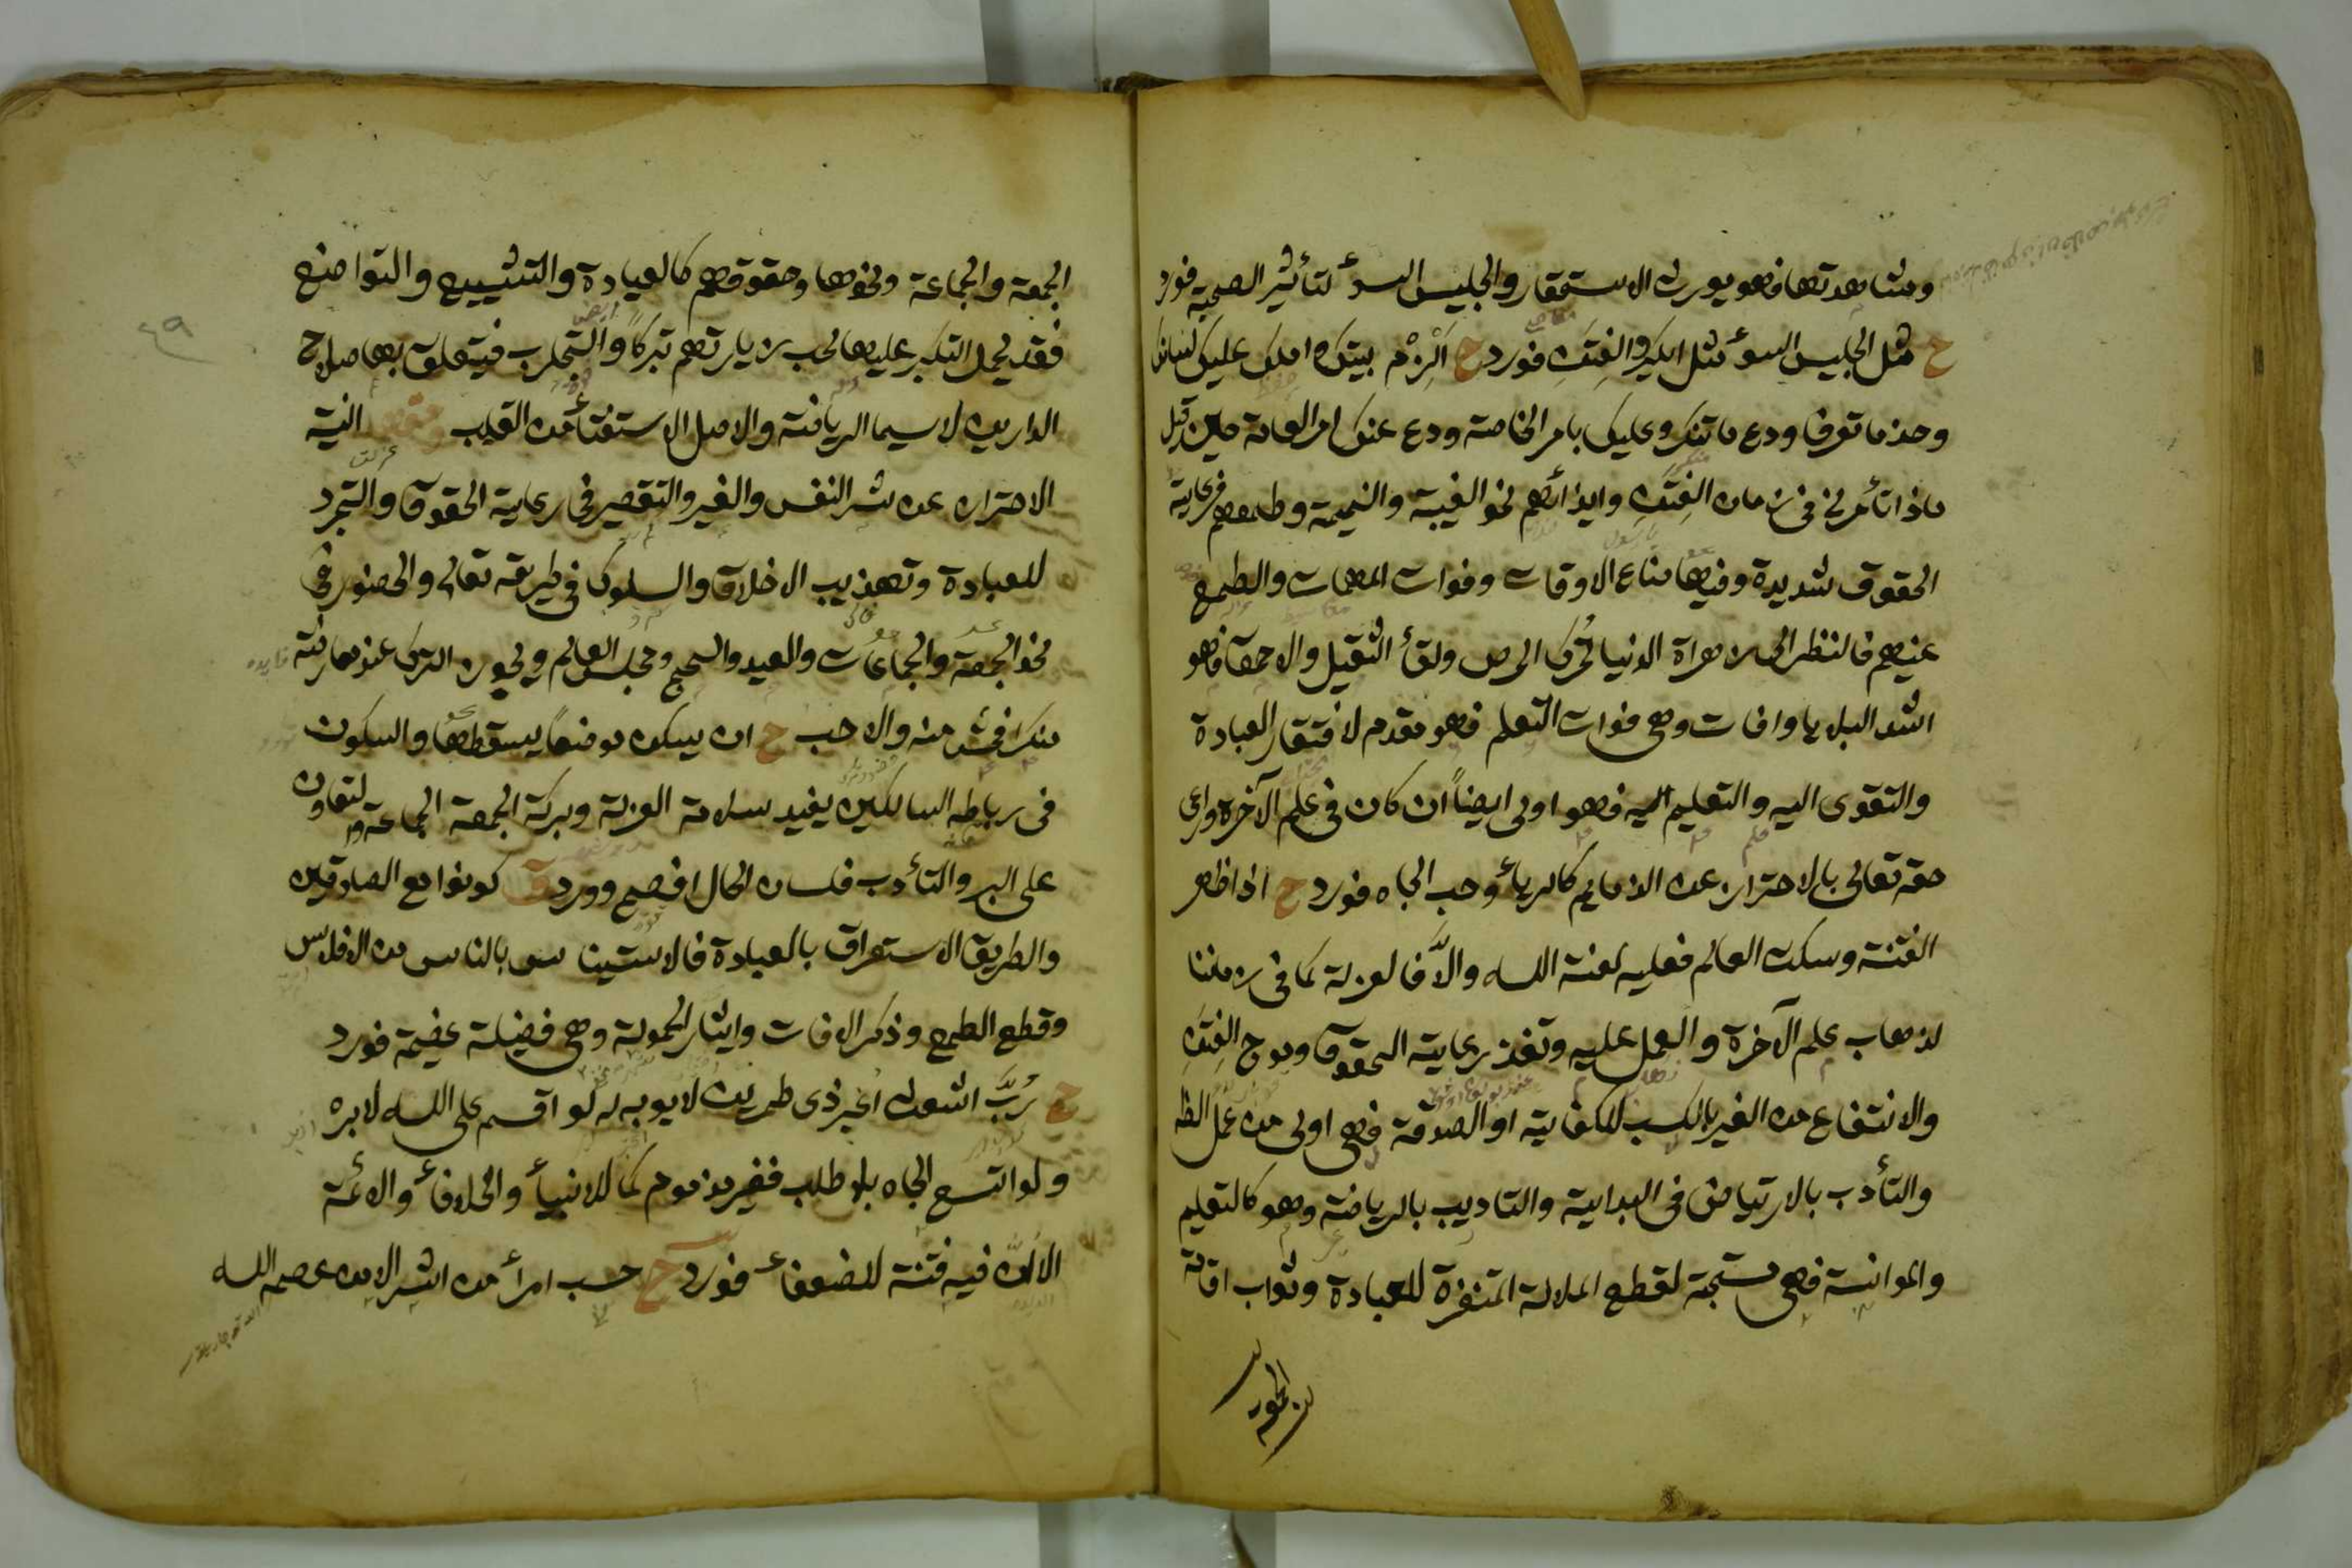 ومشاهدتها فهو يورث الاستحقار والجليس السوء لتأثير الصحبة فورد
ح مثل الجليس السوء مثل الكير والفتنة فورد ح الزم بيتك واملك عليك لسانك
وخذ ما تعرف ودع ما تنكر وعليك بامر الخاصة ودع عنك امر العامة حين قيل
ماذا تأمرني في زمان الفتنة وايذائهم نحو الغيبة والنميمة وطمعهم فرعاية
الحقوق شديدة وفيها ضاع الاوقات وفوات المهمات والطمع
عنهم فالنظر الى زهرة الدنيا تحرك الحرص ولقأ الثقيل والاحمق فهو
اشد البلايا وافات وهي فوات التعلم فهو مقدم لافتقار العبادة
والتقوى اليه والتعليم اليه فهو اولى ايضاً ان كان في علم الآخرة وراعى
حقه تعالى بالاحتراز عن الذمايم كالريأ وحب الجاه فورد ح اذا ظهر
الفتنة وسكت العالم فعليه لعنة الله والاّ فالعزلة كما في زماننا
لذهاب علم الآخرة والعمل عليه وتعذر رعاية الحقوق وموج الفتنة
والانتفاع من الغير بالكسب للكفاية او الصدقة فهي اولى من عمل الظ
والتأدب بالارتياض في البداية والتاديب بالرياضة وهو كالتعليم
والموانسة فهي مستحبة لقطع الملالة المنفرة للعبادة وثواب اقامة
الجمعة والجماعة ونحوها وحقوقهم كالعيادة والتشييع والتواضع
فقد يحمل التكبر عليها لحب زيارتهم تبركاً والتجارب فيتعلق بها صلاح
الدارين لاسيما الرياضة والاصل الاستفتأ من القلب النية
الاحتراز عن شر النفس والغير والتقصير في رعاية الحقوق والتجرد
للعبادة وتهذيب الاخلاق والسلوك في طريقه تعالى والحضور في
نحو الجمعة والجماعات والعيد والحج ومجلس العالم ويجوز الترك عند معارضة
منكر افحش منه والاحب ح ان يسكن موضعاً يسقطها والسكون
في رباط السالكين يفيد سلامة العزلة وبركة الجمعة الجماعة والتعاون
على البر والتأدب فلسان الحال افصح وورد ق كونوا مع الصادقين
والطريق الاستغراق بالعبادة فالاستيناس بالناس من الافلاس
وقطع الطمع وذكر الافات وايثار الخمولة وهي فضيلة عظيمة فورد
ح رُبَّ اشعث اغبر ذى طمرين لا يوبه له لو اقسم على الله لابره
ولو اتسع الجاه بلا طلب فغير مذموم كما للانبيأ والخلافأ والائمة
الا انّ فيه فتنة للضعفاء فورد ح حسب امرأ من الشر الا من عصمه الله